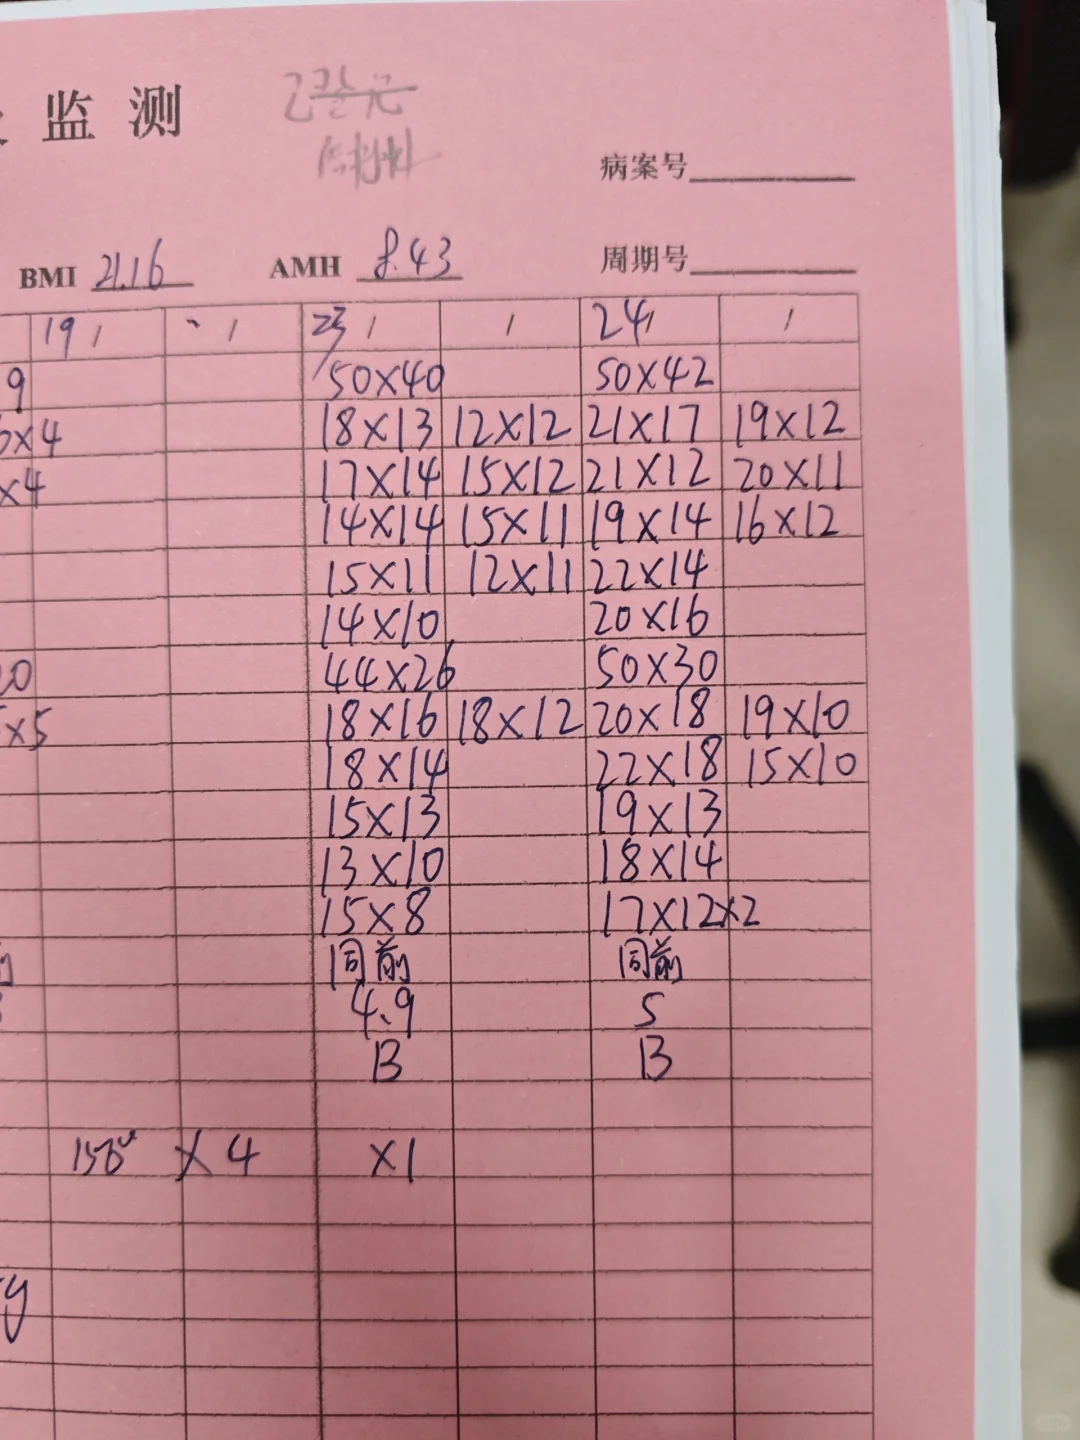 监 测
病案号
BMI 21.16 AMH 8.43 周期号
19 / / 23 / / 24 / /
9 50×40 50×42
×4 18×13 12×12 21×17 19×12
×4 17×14 15×12 21×12 20×11
14×14 15×11 19×14 16×12
15×11 12×11 22×14
14×10 20×16
20 44×26 50×30
×5 18×16 18×12 20×18 19×10
18×14 22×18 15×10
15×13 19×13
13×10 18×14
15×8 17×12×2
同前 同前
4.9 5
B B
150 ×4 ×1